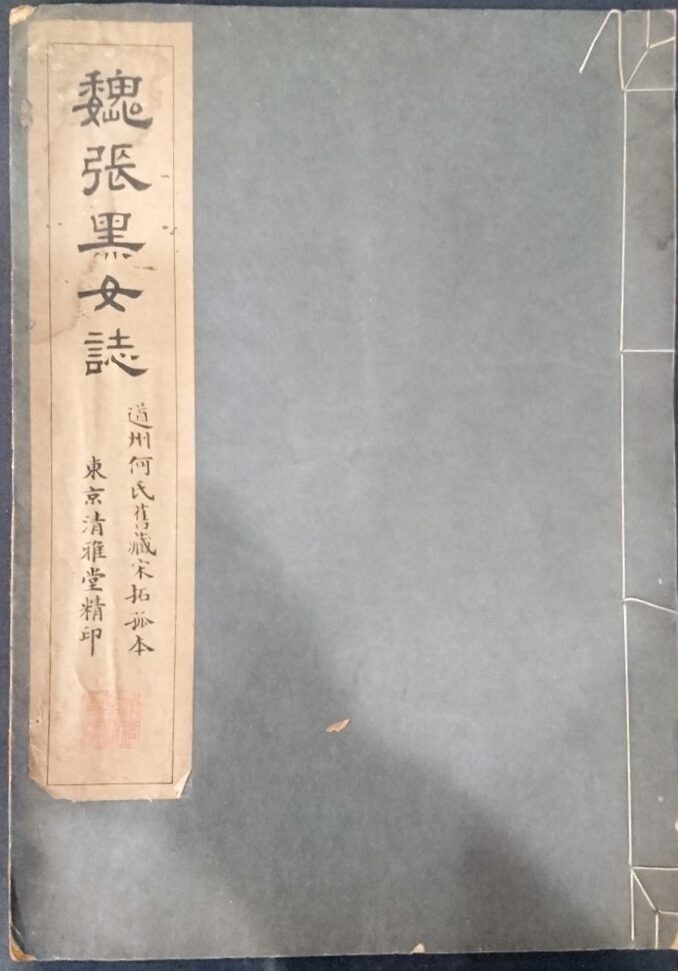 魏張黑女誌
道州何氏舊藏宋拓孤本
東京清雅堂精印